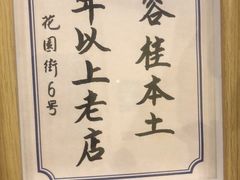 容桂本土
年以上老店
花園街6号